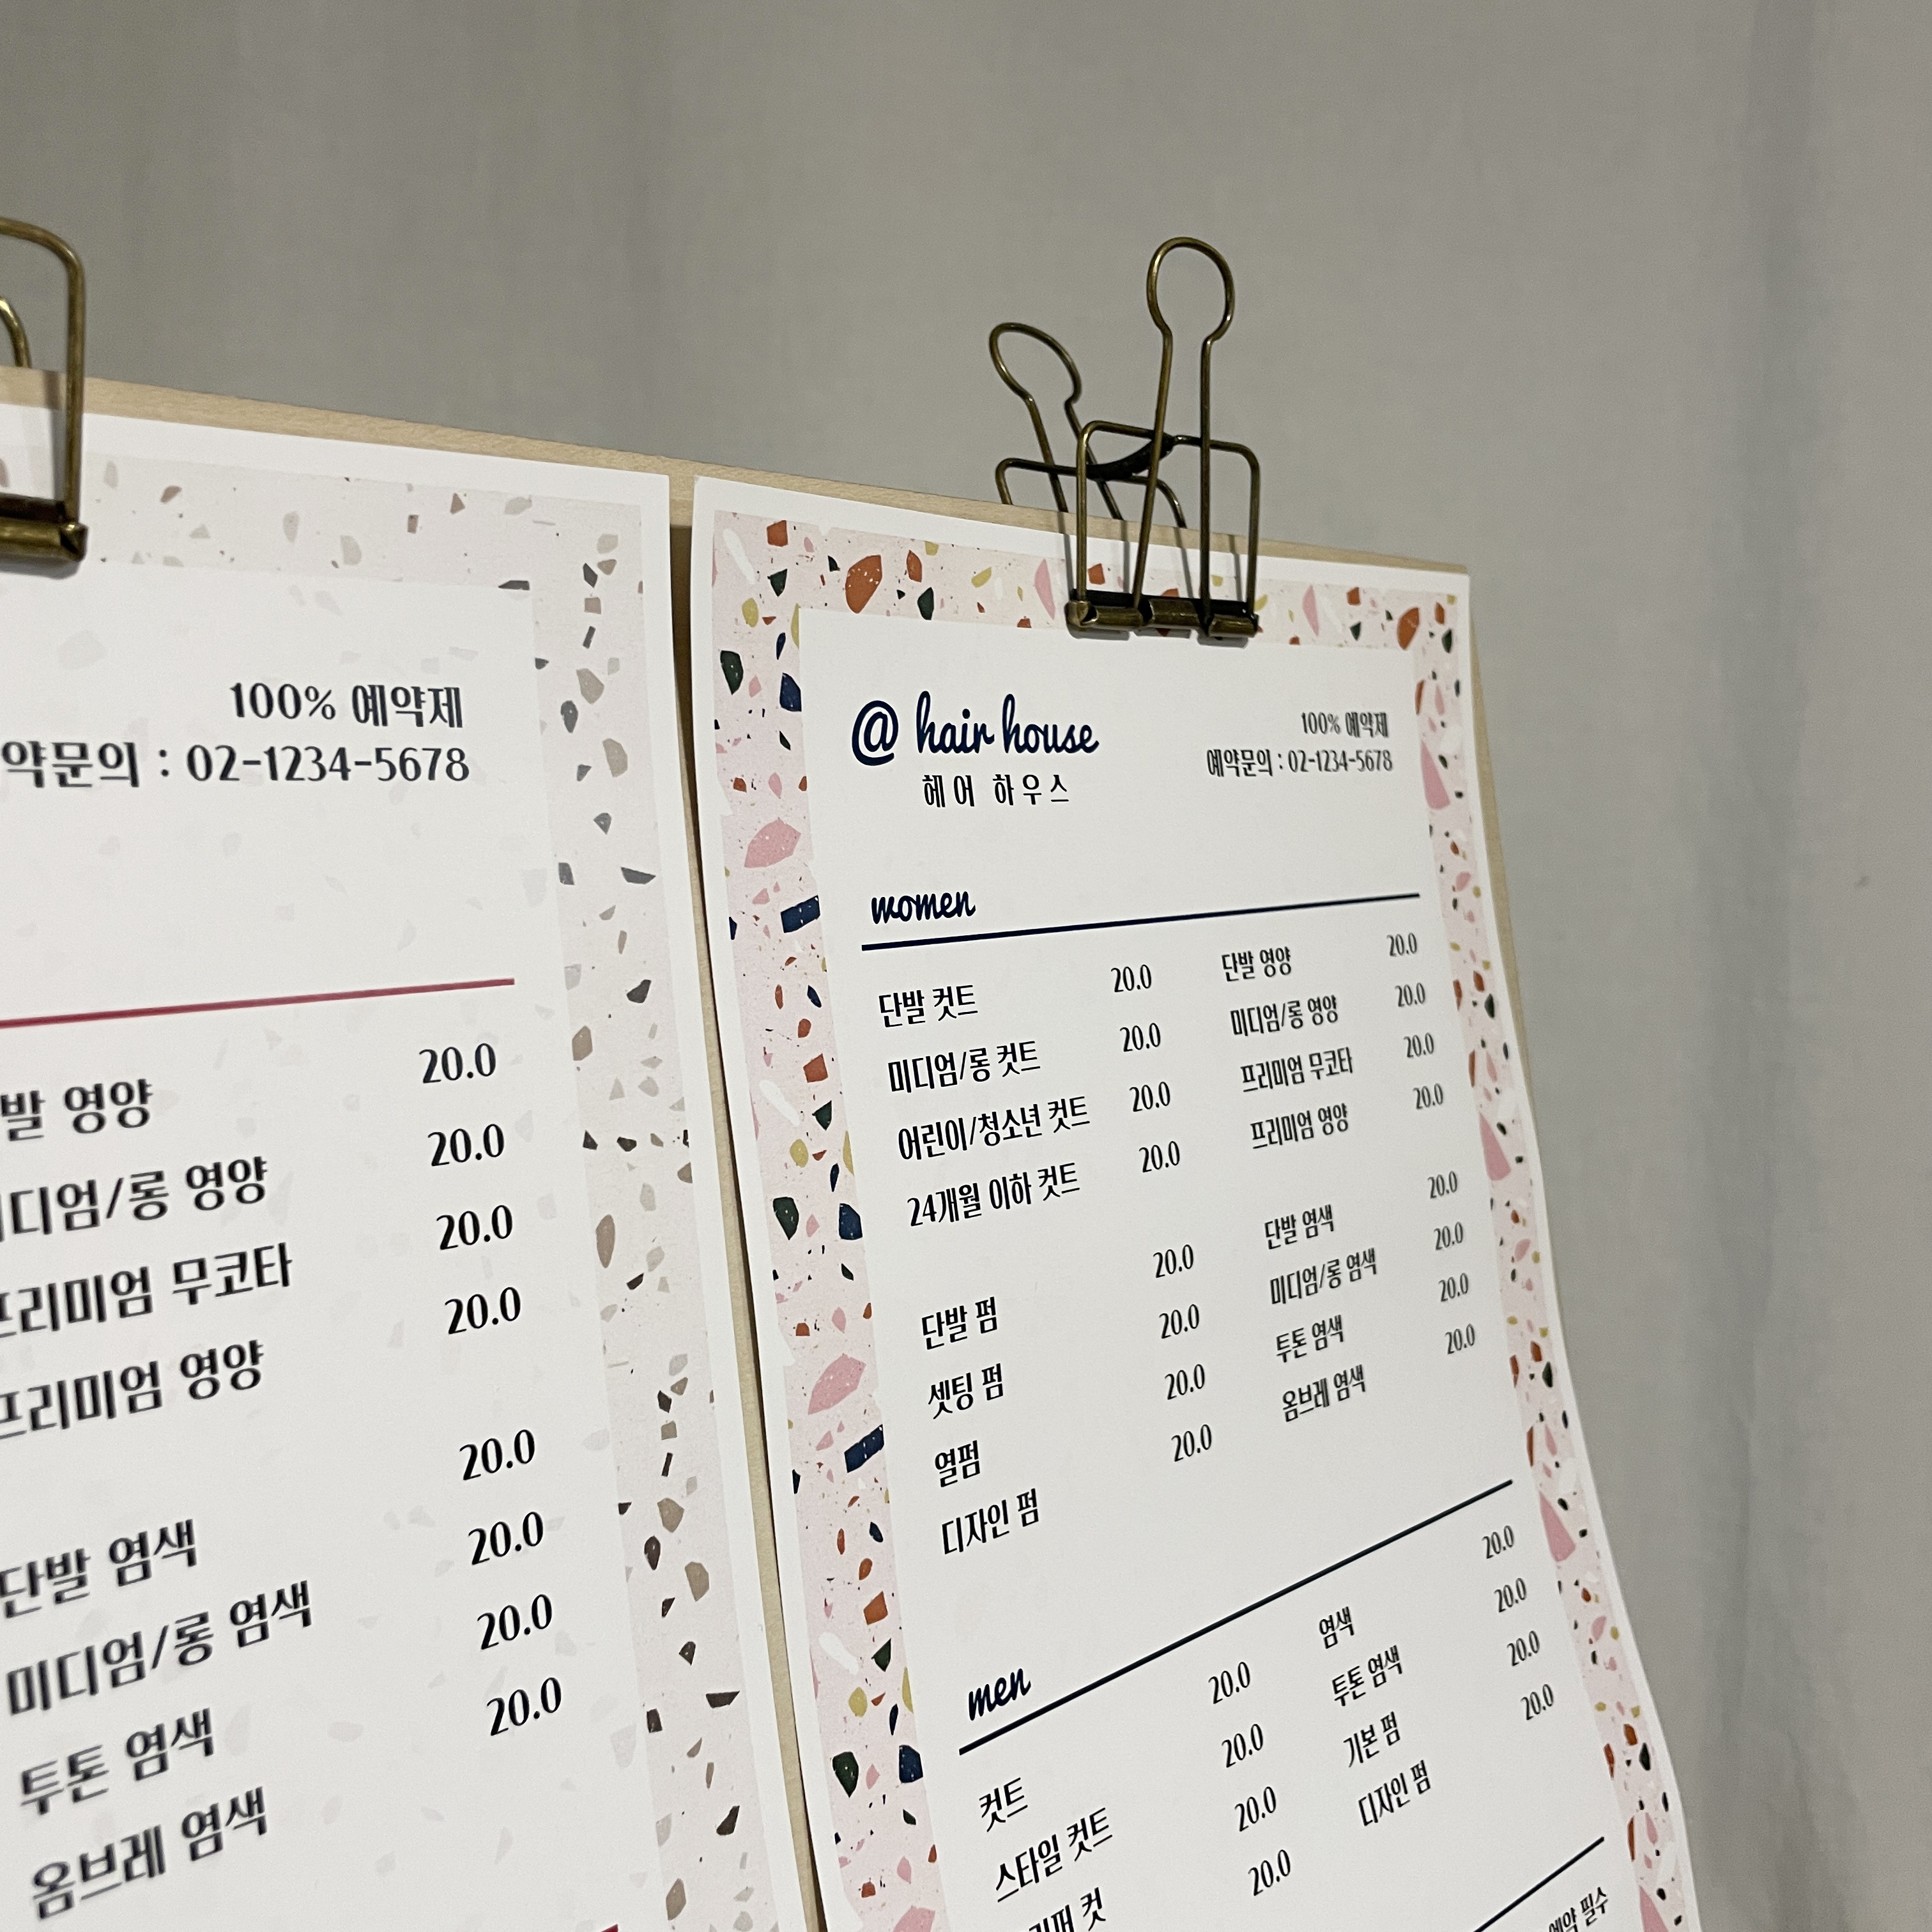 100% 예약제
약문의 : 02-1234-5678
발 영양 20.0
디엄/롱 영양 20.0
프리미엄 무코타 20.0
프리미엄 영양 20.0
단발 염색 20.0
미디엄/롱 염색 20.0
투톤 염색 20.0
옴브레 염색 20.0
@ hair house
헤어 하우스
100% 예약제
예약문의 : 02-1234-5678
women
단발 컷트 20.0
미디엄/롱 컷트 20.0
어린이/청소년 컷트 20.0
24개월 이하 컷트 20.0
단발 펌 20.0
셋팅 펌 20.0
열펌 20.0
디자인 펌 20.0
단발 영양 20.0
미디엄/롱 영양 20.0
프리미엄 무코타 20.0
프리미엄 영양 20.0
단발 염색 20.0
미디엄/롱 염색 20.0
투톤 염색 20.0
옴브레 염색 20.0
men
컷트 20.0
스타일 컷트 20.0
컷 20.0
20.0
염색 20.0
투톤 염색 20.0
기본 펌 20.0
디자인 펌 20.0
예약 필수